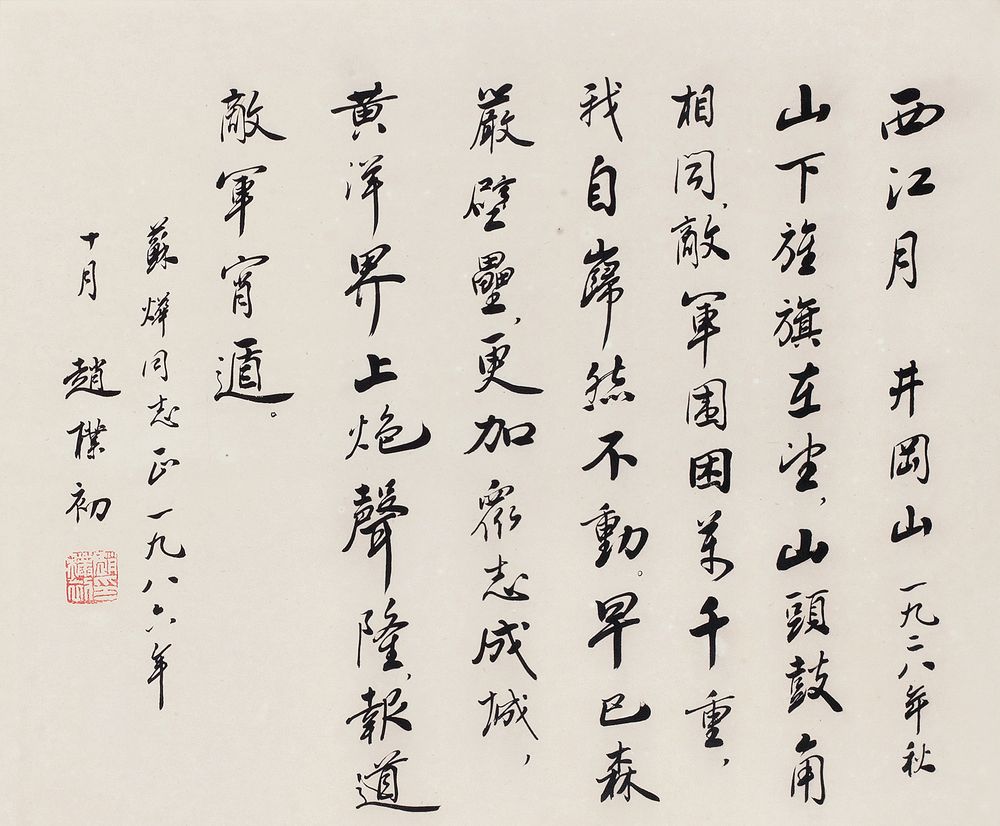 西江月 井岡山 一九二八年秋
山下旌旗在望,山頭鼓角
相聞,敵軍圍困萬千重,
我自巋然不動。早已森
嚴壁壘,更加衆志成城,
黄洋界上炮聲隆,報道
敵軍宵遁。
蘇燁同志正 一九八六年
十月 趙樸初